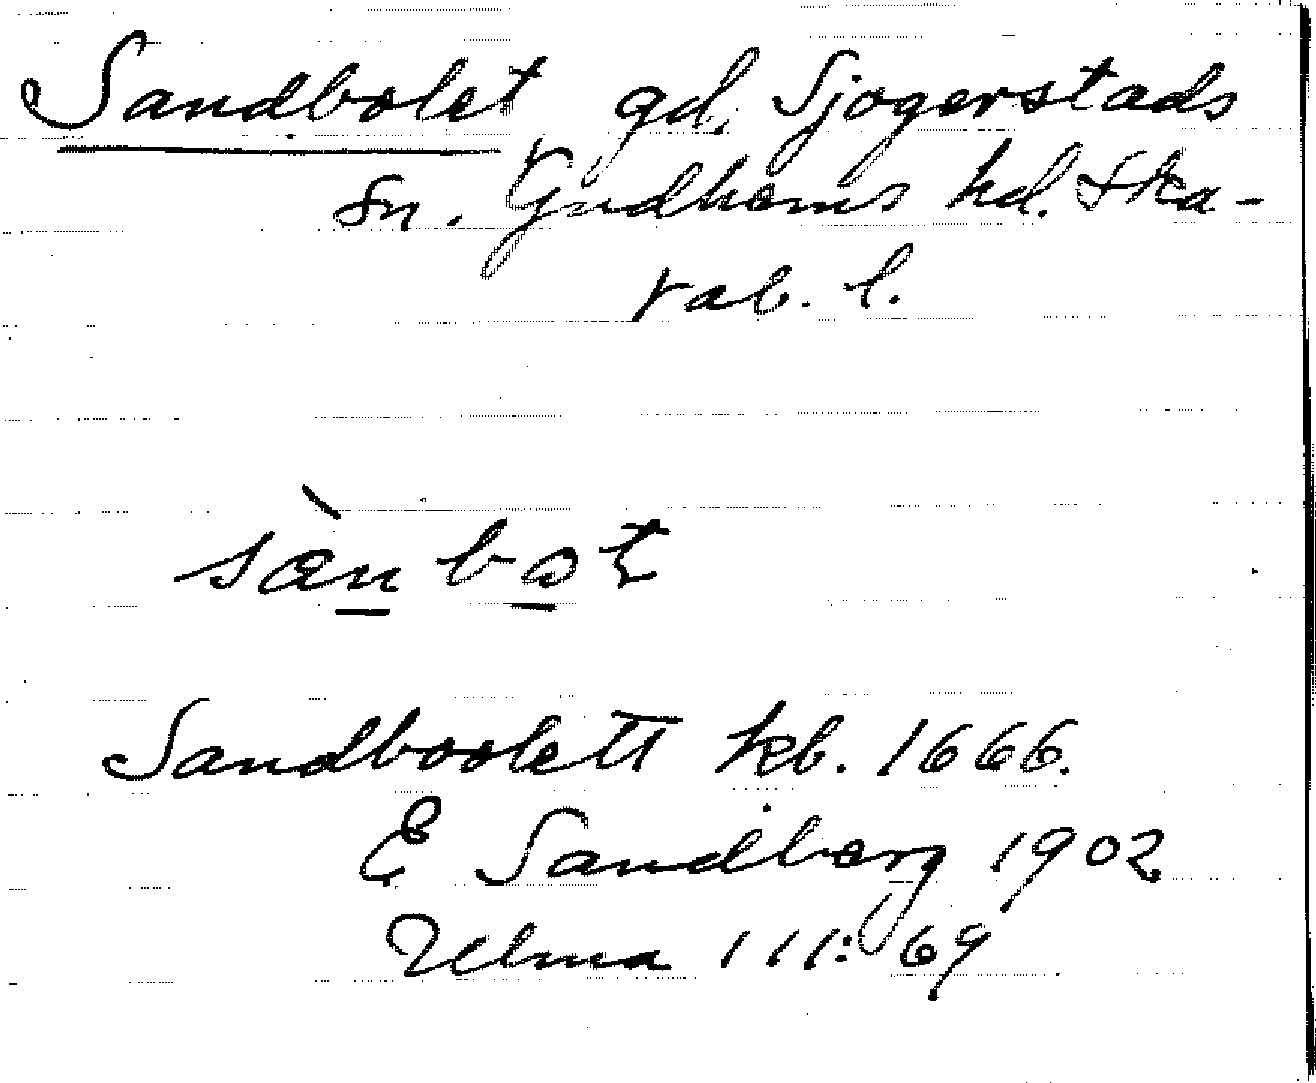 Sandbolet gd, Sjogerstads
sn. Gudhems hd. Ska-
rab. l.
sànbot
Sandboolett kb. 1666.
E Sandberg 1902
Ulma 111:69